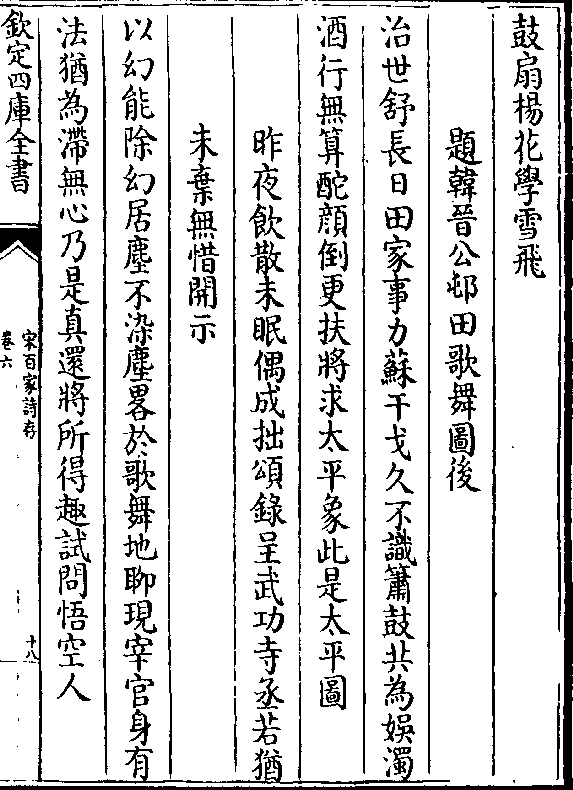 鼓扇楊花學雪飛
題韓晉公邨田歌舞圖後
治世舒長日田家事力蘇干戈久不識簫鼓共為娛濁
酒行無算酡顔倒更扶將求太平象此是太平圖
昨夜飲散未眠偶成拙頌錄呈武功寺丞若猶
未棄無惜開示
以幻能除幻居塵不染塵畧於歌舞地聊現宰官身有
法猶為滯無心乃是真還將所得趣試問悟空人
欽定四庫全書
宋百家詩存
卷六
十八